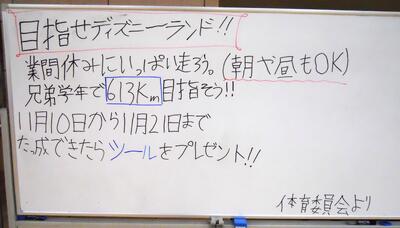 目指せディズニーランド!!
業間休みにいっぱい走ろう。(朝や昼もOK)
兄弟学年で613Km目指そう!!
11月10日から11月21日まで
たっ成できたらツールをプレゼント!!
体育委員会より